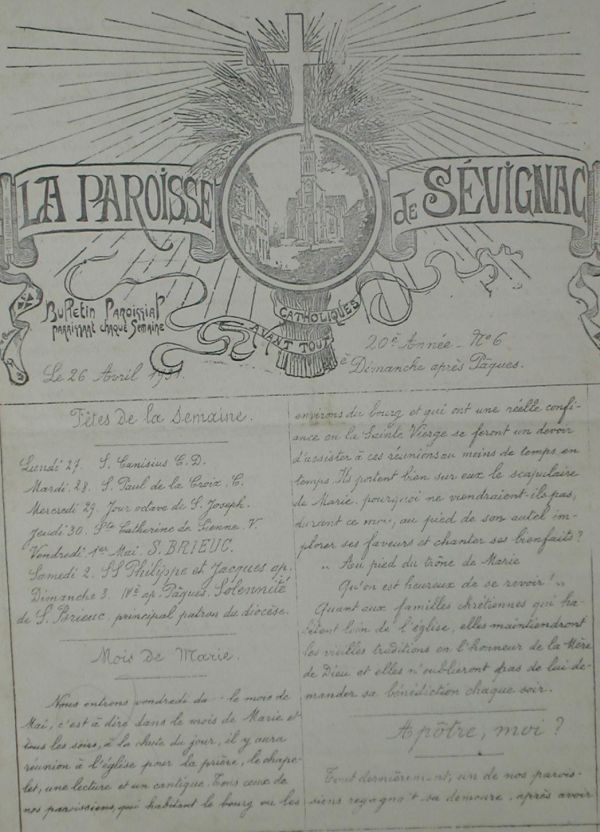 LA PAROISSE de SÉVIGNAC
CATHOLIQUES
AVANT TOUT
Bulletin Paroissial
paraissant chaque Semaine
20e Année - No 6
Le 26 Avril 1931.
Dimanche après Pâques.
Fêtes de la Semaine.
Lundi 27. S. Canisius C. D.
Mardi. 28. S. Paul de la Croix. C.
Mercredi 29. Jour octave de S. Joseph.
Jeudi 30. Ste Catherine de Sienne. V.
Vendredi 1er Mai. S. BRIEUC.
Samedi 2. SS Philippe et Jacques ap.
Dimanche 3. IVe ap. Pâques. Solennité
de S. Brieuc, principal patron du diocèse.
Mois de Marie.
Nous entrons vendredi da le mois de
Mai, c'est à dire dans le mois de Marie et
tous les soirs, à la chute du jour, il y aura
réunion à l'église pour la prière, le chape-
let, une lecture et un cantique. Tous ceux de
nos paroissiens, qui habitent le bourg ou les
environs du bourg et qui ont une réelle confi-
ance en la Sainte Vierge se feront un devoir
d'assister à ces réunions au moins de temps en
temps. Ils portent bien sur eux le scapulaire
de Marie. pourquoi ne viendraient-ils pas,
durant ce mois, au pied de son autel im-
plorer ses faveurs et chanter ses bienfaits?
"Au pied du trône de Marie
Qu'on est heureux de se revoir!"
Quant aux familles chrétiennes qui ha-
bitent loin de l'église, elles maintiendront
les vieilles traditions en l'honneur de la Mère
de Dieu et elles n'oublieront pas de lui de-
mander sa bénédiction chaque soir.
Apôtre, moi?
Tout dernièrement, un de nos parois-
siens regagnait sa demeure, après avoir